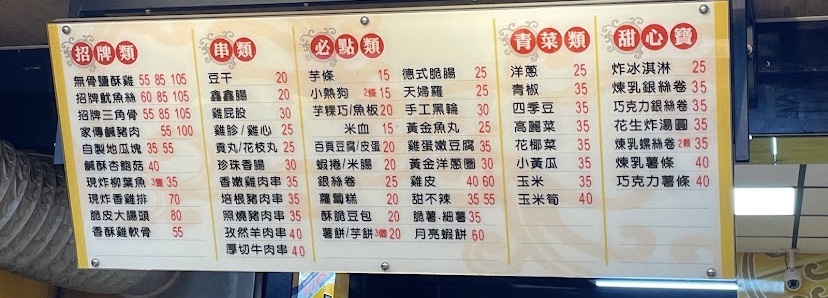 招牌類
無骨鹽酥雞 55 85 105
招牌魷魚絲 60 85 105
招牌三角骨 55 85 105
家傳鹹豬肉 55 100
自製地瓜塊 35 55
鹹酥杏鮑菇 40
現炸柳葉魚 3個 35
現炸香雞排 70
脆皮大腸頭 80
香酥雞軟骨 55
串類
豆干 20
鑫鑫腸 20
雞屁股 30
雞胗/雞心 25
貢丸/花枝丸 25
珍珠香腸 30
香嫩雞肉串 35
培根豬肉串 35
照燒豬肉串 35
孜然羊肉串 40
厚切牛肉串 40
必點類
芋條 15
小熱狗 2條 15
芋粿巧/魚板 20
米血 15
百頁豆腐/皮蛋 20
蝦捲/米腸 20
銀絲卷 25
蘿蔔糕 20
酥脆豆包 20
薯餅/芋餅 3個 20
德式脆腸 25
天婦羅 25
手工黑輪 30
黃金魚丸 25
雞蛋嫩豆腐 35
黃金洋蔥圈 30
雞皮 40 60
甜不辣 35 55
脆薯·細薯 35
月亮蝦餅 60
青菜類
洋蔥 25
青椒 35
四季豆 35
高麗菜 35
花椰菜 35
小黃瓜 35
玉米 35
玉米筍 40
甜心寶
炸冰淇淋 25
煉乳銀絲卷 35
巧克力銀絲卷 35
花生炸湯圓 35
煉乳螺絲卷 2顆 35
煉乳薯條 40
巧克力薯條 40